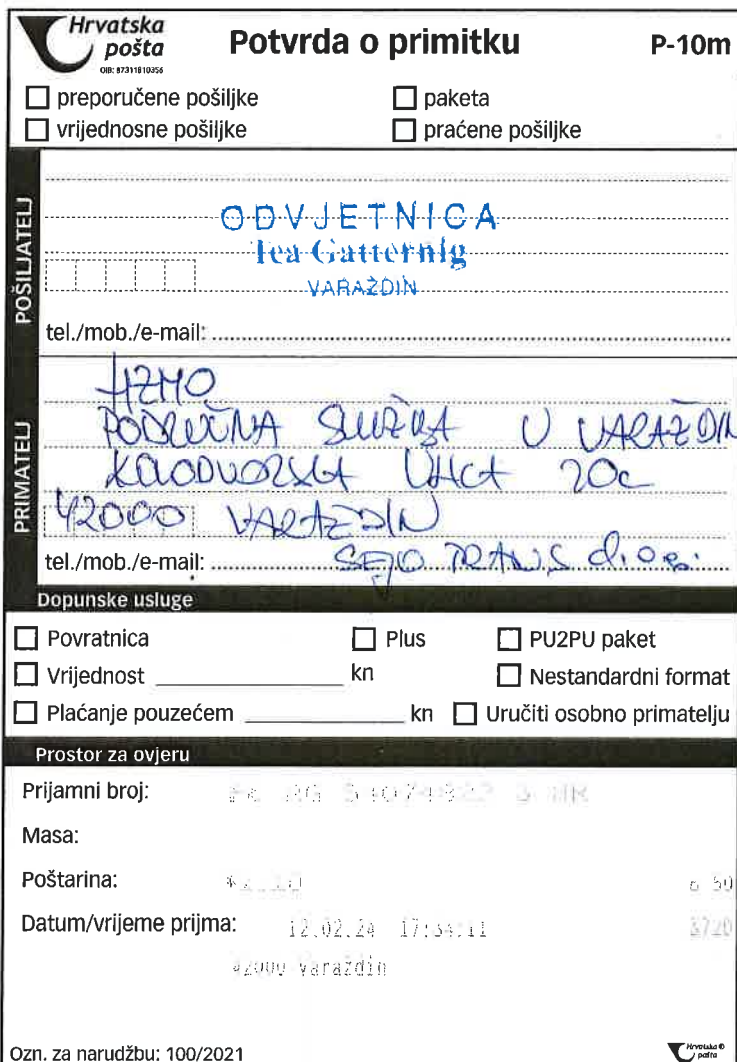 Hrvatska
pošta
OIB: 87311810356
Potvrda o primitku
P-10m
preporučene pošiljke
paketa
vrijednosne pošiljke
praćene pošiljke
POŠILJATELJ
ODVJETNICA
Tea Gatternig
VARAŽDIN
tel./mob./e-mail:
PRIMATELJ
HZMO
PODRUČNA SLUŽBA U VARAŽDIN
KOLODVORSKA ULICA 20c
42000 VARAŽDIN
tel./mob./e-mail: SEJO TRANS d.o.o.
Dopunske usluge
Povratnica
Plus
PU2PU paket
Vrijednost kn
Nestandardni format
Plaćanje pouzećem kn
Uručiti osobno primatelju
Prostor za ovjeru
Prijamni broj:
Masa:
Poštarina:
Datum/vrijeme prijma: 12.02.24 17:34:11
42000 Varaždin
Ozn. za narudžbu: 100/2021
Hrvatska
pošta